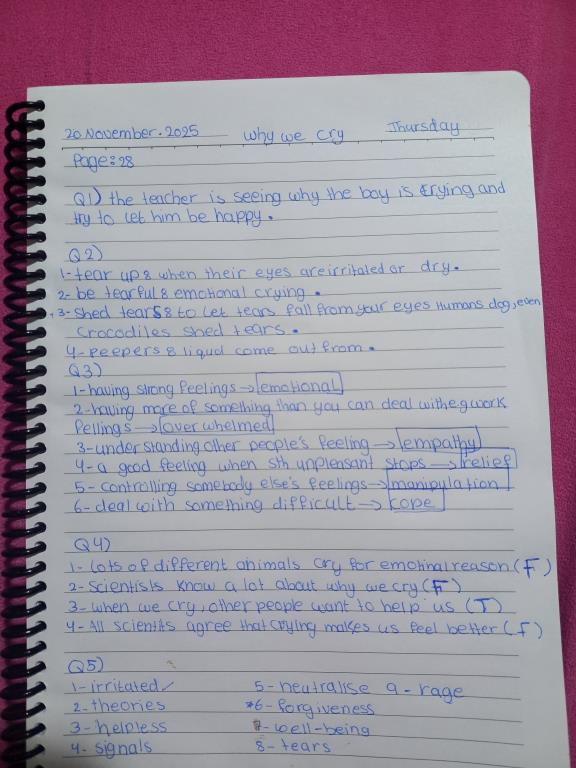 20 November. 2025 Why we cry Thursday
Page: 28
Q1) the teacher is seeing why the boy is crying and
try to let him be happy.
Q2)
1- tear up 8 when their eyes are irritated or dry.
2- be tearful 8 emotional crying.
3- shed tears 8 to let tears fall from your eyes Humans dog, even
crocodiles shed tears.
4- peepers 8 liqud come out from.
Q3)
1- having strong feelings → emotional
2- having more of something than you can deal with e.g work
fellings → over whelmed
3- under standing other people's feeling → empathy
4- a good feeling when sth unplensant stops → relief
5- controlling somebody else's feelings → manipulation
6- deal with something difficult → cope
Q4)
1- lots of different animals cry for emotinal reason (F)
2- scientists know a lot about why we cry (F)
3- when we cry, other people want to help us (T)
4- All scientits agree that crying makes us feel better (F)
Q5)
1- irritated ✓ 5- neutralise 9- rage
2- theories *6- forgiveness
3- helpless 7- well-being
4- signals 8- tears